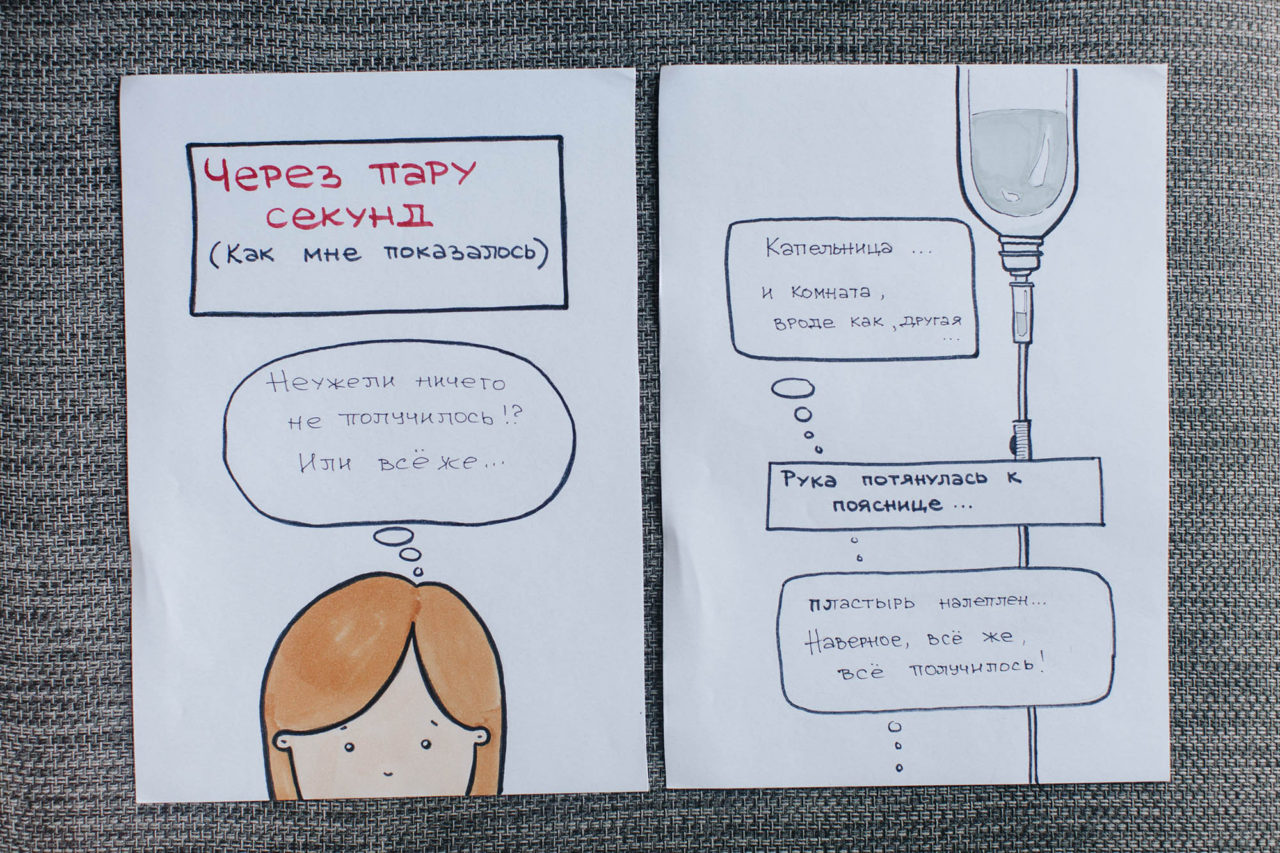 Через пару
секунд
(Как мне показалось)
Неужели ничего
не получилось!?
Или всё же...
Капельница ...
и комната,
вроде как, другая
...
Рука потянулась к
пояснице ...
Пластырь налеплен...
Наверное, всё же,
всё получилось!